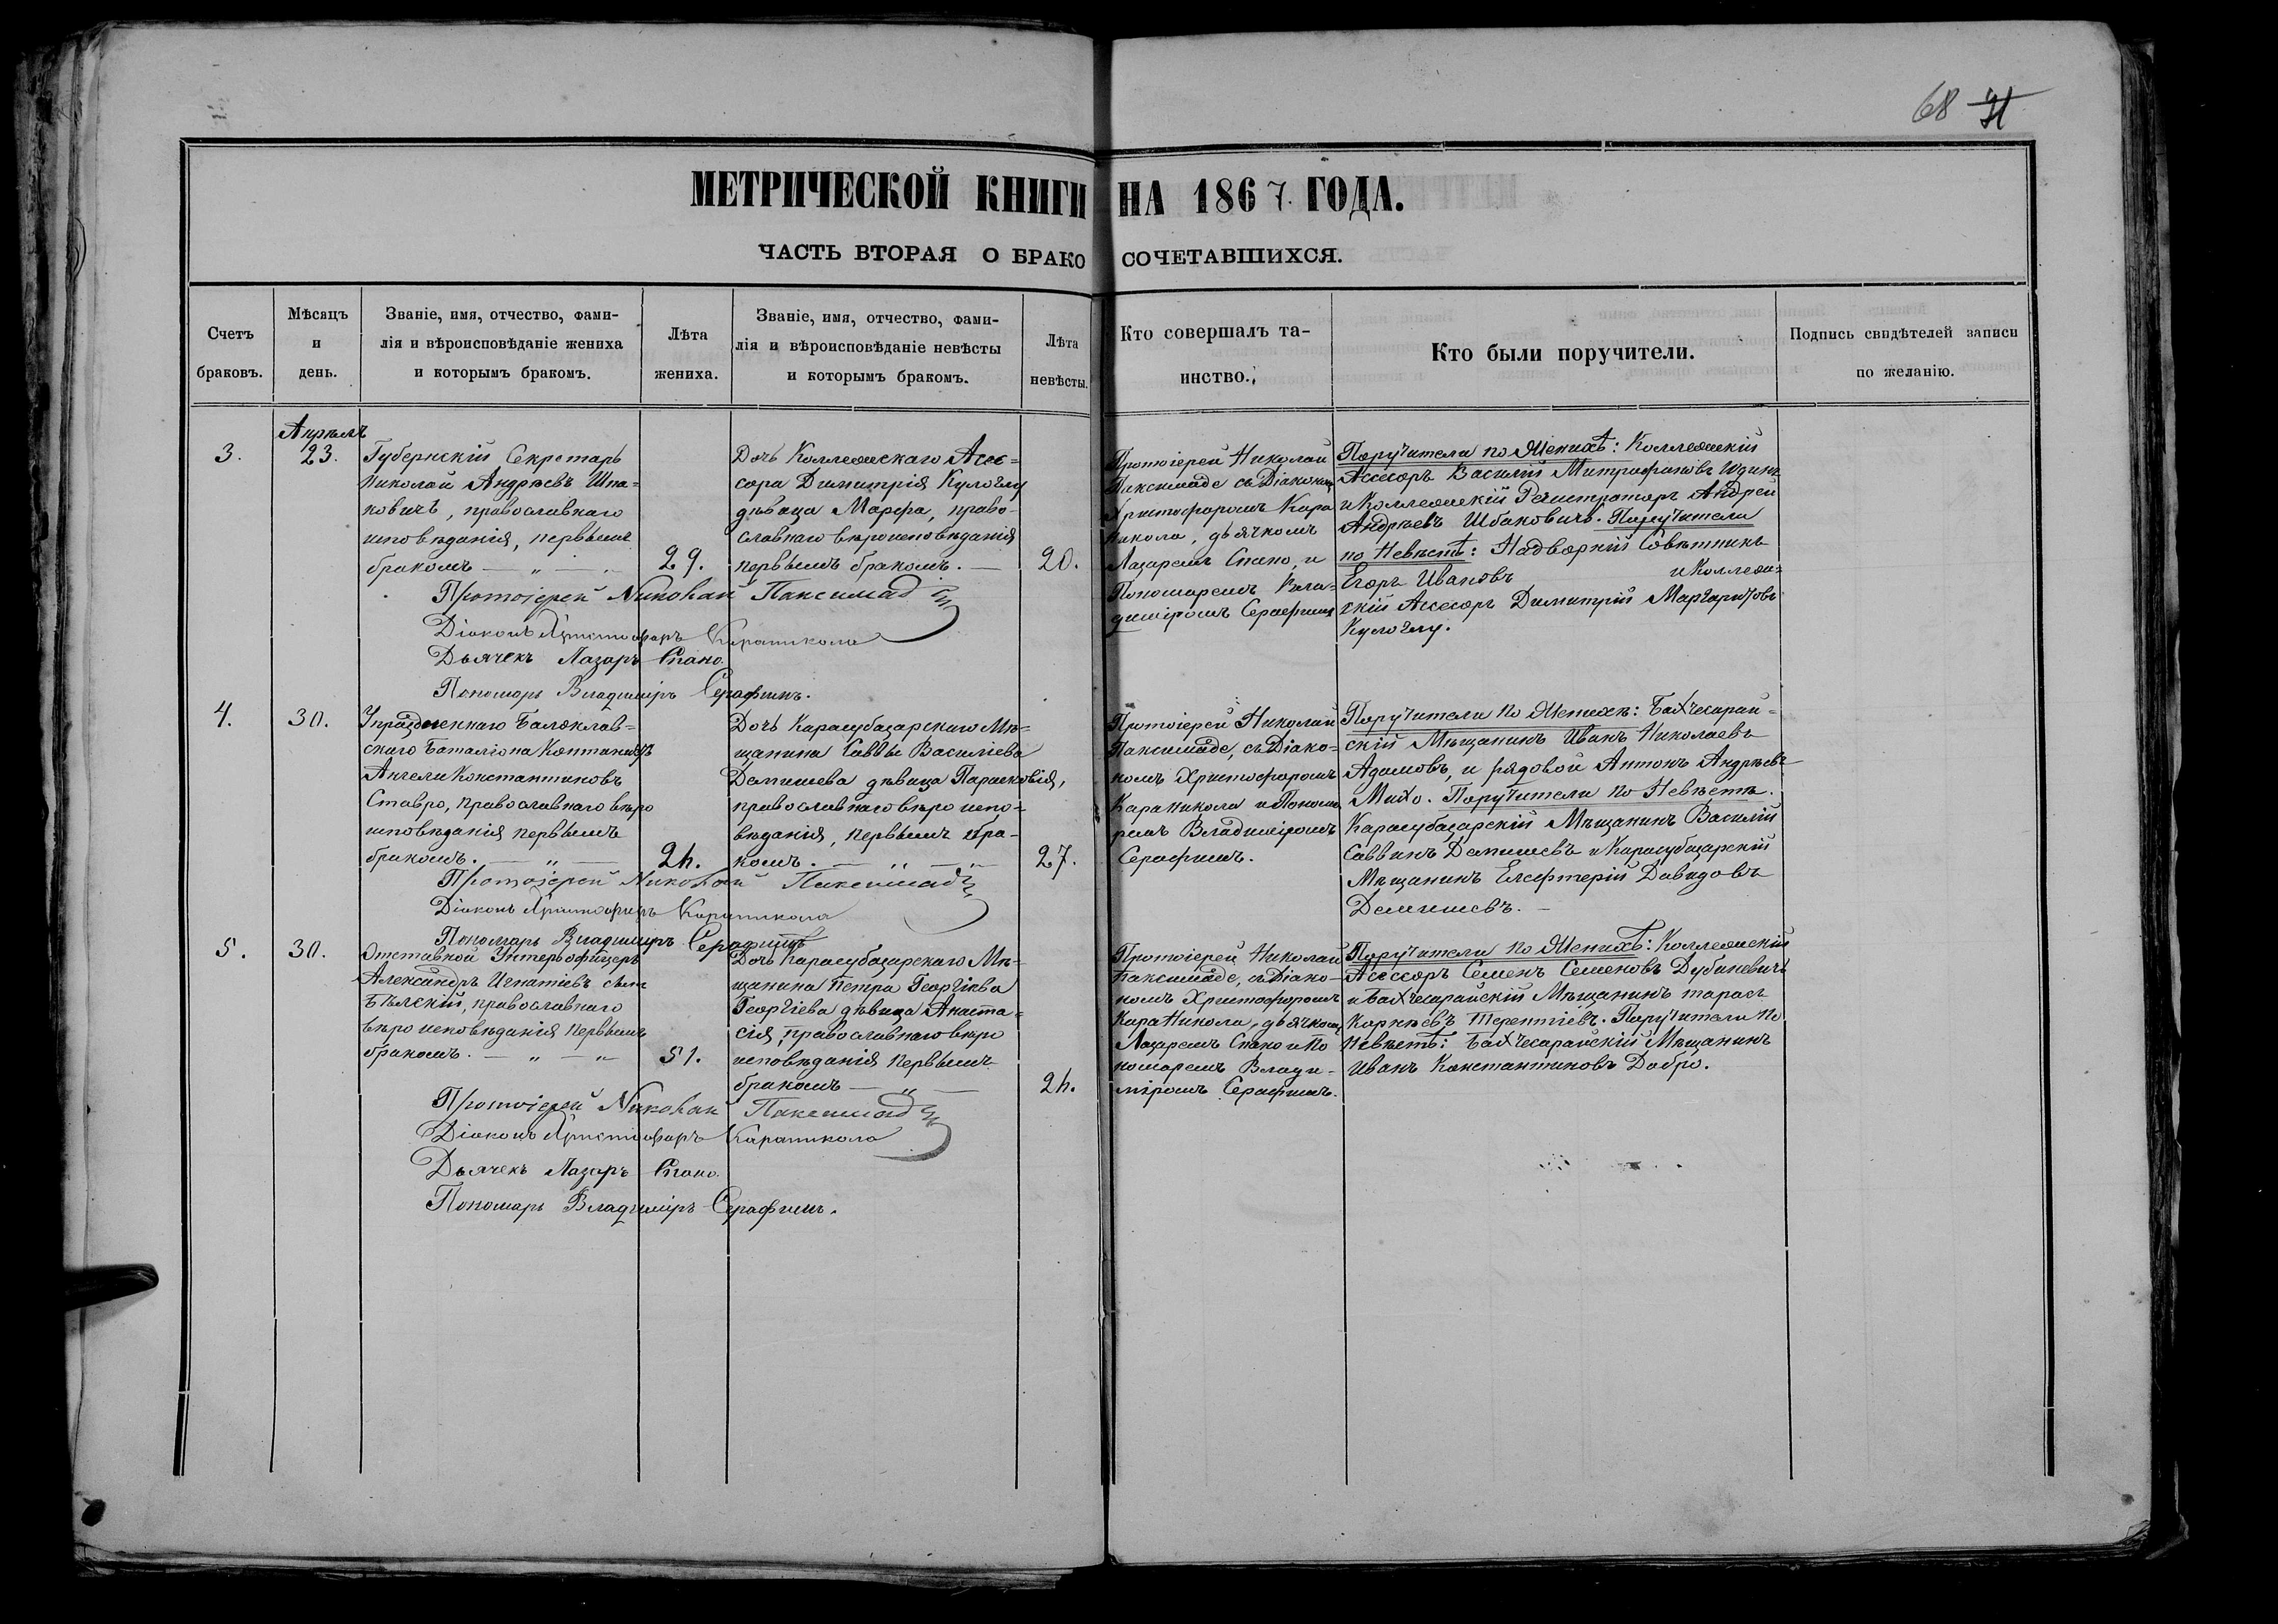 68 71
МЕТРИЧЕСКОЙ КНИГИ НА 1867. ГОДА.
ЧАСТЬ ВТОРАЯ О БРАКОСОЧЕТАВШИХСЯ.
Счетъ
браковъ.
Мѣсяцъ
и
день.
Званіе, имя, отчество, фами-
лія и вѣроисповѣданіе жениха
и которымъ бракомъ.
Лѣта
жениха.
Званіе, имя, отчество, фами-
лія и вѣроисповѣданіе невѣсты
и которымъ бракомъ.
Лѣта
невѣсты.
Кто совершалъ та-
инство.
Кто были поручители.
Подпись свидѣтелей записи
по желанію.
3.
Апрѣль
23.
Губернскій Секретарь
Николай Андрѣевъ Шпа-
ковичъ, православнаго
исповѣданія, первымъ
бракомъ — „ —
29.
Дочь Коллежскаго Асес=
сора Димитрія Кулоглу
дѣвица Марфа, право-
славнаго вѣроисповѣданія
первымъ бракомъ. —
20.
Протоіерей Николай
Паксимаде съ Діакономъ
Христофоромъ Кара
Никола, дьячкомъ
Лазаремъ Спано, и
Пономаремъ Вла-
диміромъ Серафимъ
Поручители по Женихѣ: Коллежскій
Асессоръ Василій Митрофановъ
и Коллежскій Регистраторъ Андрей
Андрѣевъ Шбаковичъ. Поручители
по Невѣстѣ: Надворній Совѣтникъ
Егоръ Ивановъ и Коллеж-
скій Асессоръ Димитрій Маргаритовъ
Кулоглу.
Протоіерей Николай Паксимади
Діаконъ Христофоръ Караникола
Дьячекъ Лазаръ Спано.
Пономарь Владиміръ Серафимъ.
4.
30.
Упраздненнаго Балаклав=
скаго Баталіона Каптанисъ
Ангели Константиновъ
Ставро, православнаго вѣро
исповѣданія первымъ
бракомъ. — „ —
24.
Дочь Карасубазарскаго Мѣ=
щанина Саввы Василіева
Демишева дѣвица Парасковія,
православнаго вѣро испо=
вѣданія, первымъ бра-
комъ. — „ — „
27.
Протоіерей Николай
Паксимаде, съ Діако-
номъ Христофоромъ
Караникола и Понома
ремъ Владиміромъ
Серафимъ.
Поручители по Женихѣ: Бахчесарай=
скій Мѣщанинъ Иванъ Николаевъ
Адамовъ, и рядовой Антонъ Андрѣевъ
Михо. Поручители по Невѣстѣ.
Карасубазарскій Мѣщанинъ Василій
Саввинъ Демишевъ и Карасубазарскій
Мѣщанинъ Елефтерій Давидовъ
Демишевъ. —
Протоіерей Николай Паксимади
Діаконъ Христофоръ Караникола
Пономарь Владиміръ Серафимъ
5.
30.
Отставной Унтеръ офицеръ
Александръ Игнатіевъ сынъ
Бѣлскій, православнаго
вѣро исповѣданія первымъ
бракомъ. — „ — „
51.
Дочь Карасубазарскаго Мѣ-
щанина Петра Георгіева
Георгіева дѣвица Анаста-
сія, православнаго вѣро
исповѣданія первымъ
бракомъ — „ —
24.
Протоіерей Николай
Паксимаде, съ Діако-
номъ Христофоромъ
КараНикола, дьячкомъ
Лазаремъ Спано и По
номаремъ Влади-
міромъ Серафимъ.
Поручители по Женихѣ: Коллежскій
Асессоръ Семенъ Семеновъ Дубиневичъ
и Бахчесарайскій Мѣщанинъ тарасъ
Корнѣевъ Терентіевъ. Поручители по
Невѣстѣ: Бахчесарайскій Мѣщанинъ
Иванъ Константиновъ Добро.
Протоіерей Николай Паксимади
Діаконъ Христофоръ Караникола
Дьячекъ Лазаръ Спано.
Пономарь Владиміръ Серафимъ.